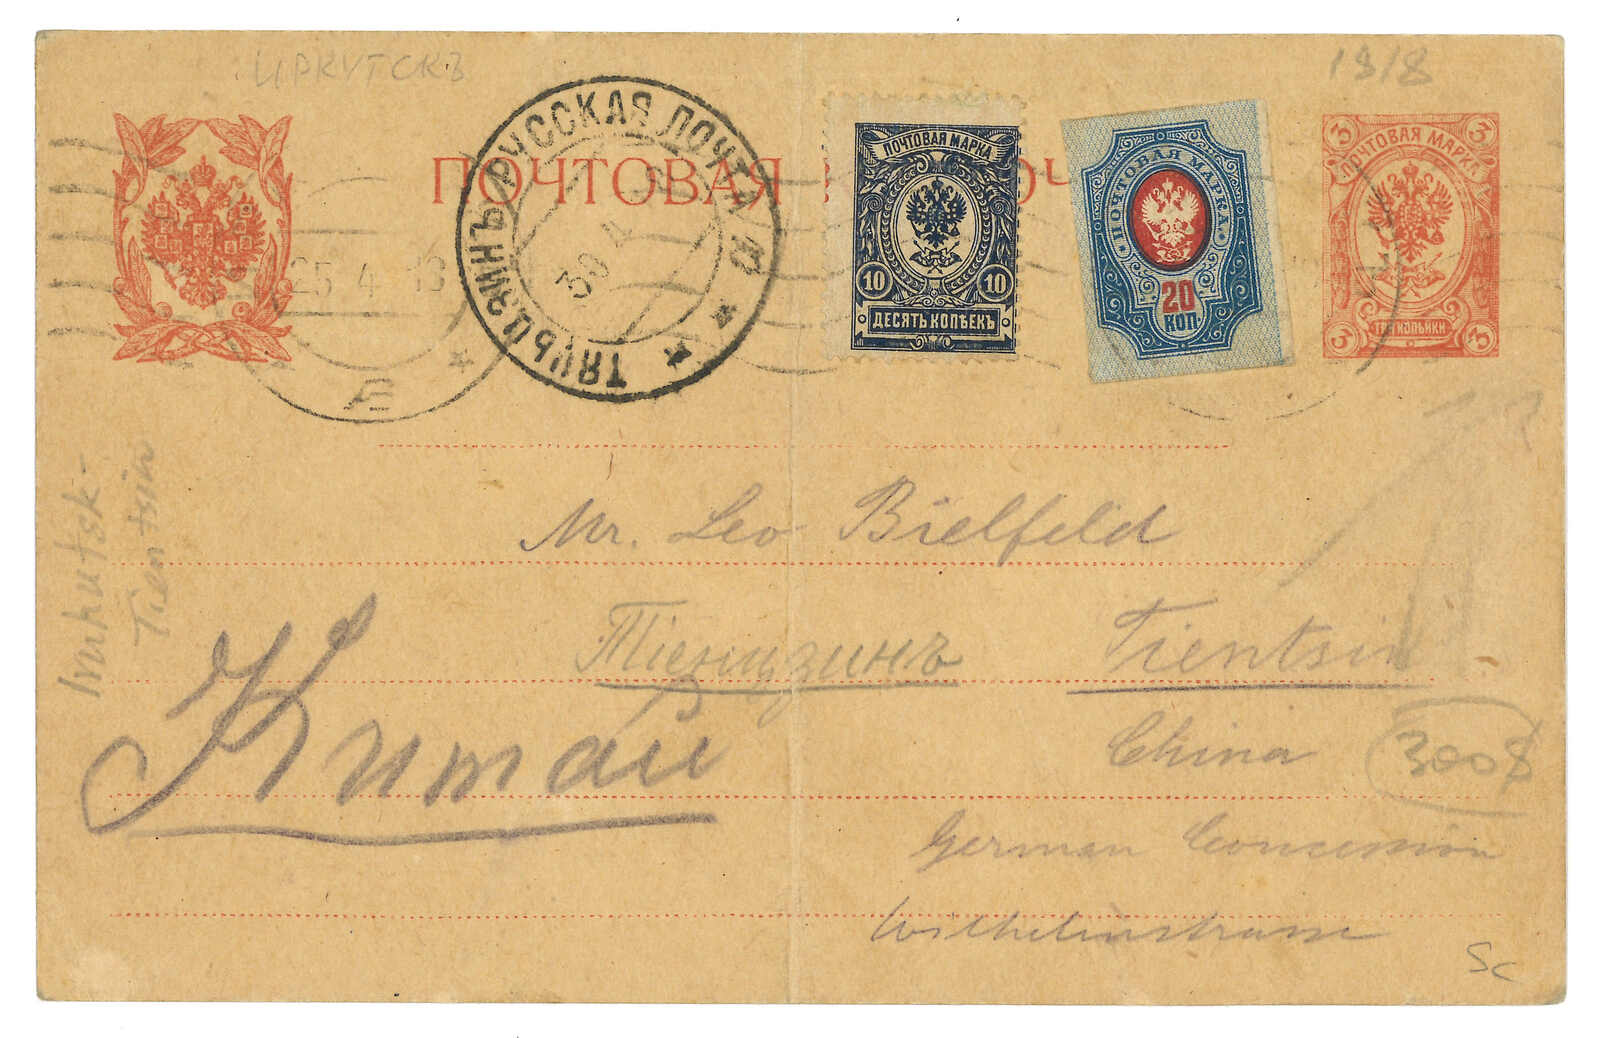 ИРКУТСКЪ
1918
ПОЧТОВАЯ
РУССКАЯ ПОЧТА
ТЯНЬЦЗИНЪ
30 4
25 4 18
ПОЧТОВАЯ МАРКА
10 10
ДЕСЯТЬ КОПѢЕКЪ
ПОЧТОВАЯ МАРКА
20
КОП.
3 3
ПОЧТОВАЯ МАРКА
ТРИ КОПѢЙКИ
3 3
Irkutsk-
Tientsin
Mr. Leo Bielfeld
Тіенцзинъ Tientsin
Китай
China
300$
German Concession
Wilhelmstrasse
Sc